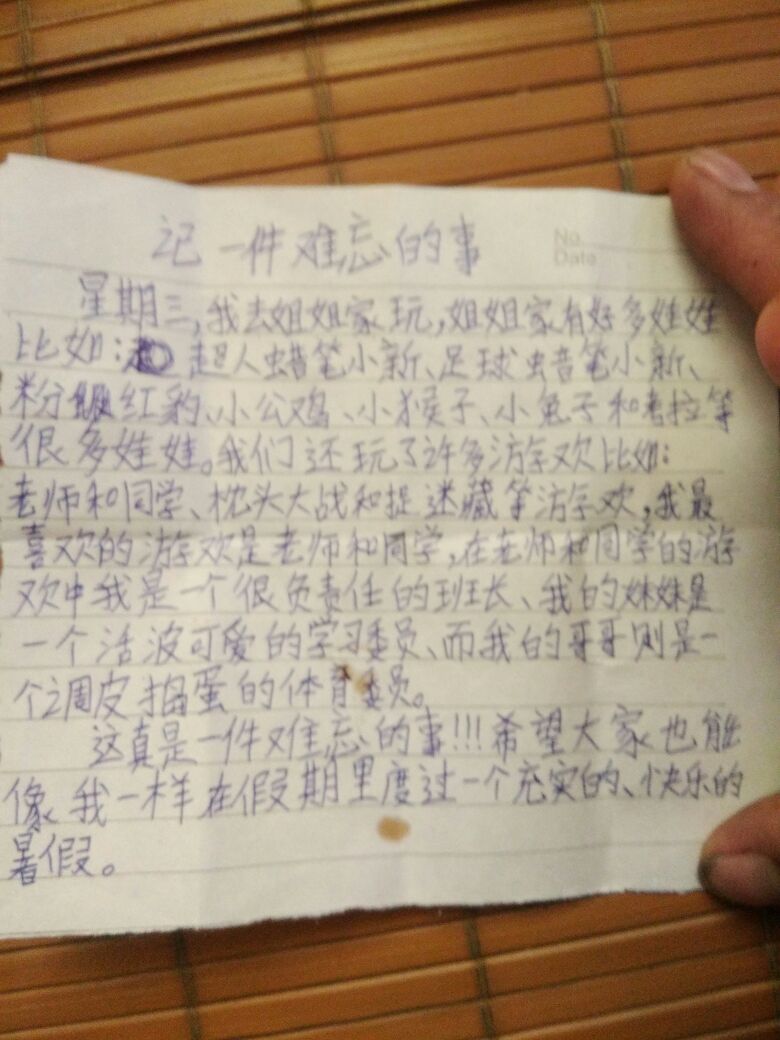 No.
Date
记一件难忘的事
星期三,我去姐姐家玩,姐姐家有好多娃娃
比如:超人蜡笔小新、足球蜡笔小新、
粉红豹、小公鸡、小猴子、小兔子和考拉等
很多娃娃。我们还玩了许多游欢比如:
老师和同学、枕头大战和捉迷藏等游欢,我最
喜欢的游欢是老师和同学,在老师和同学的游
欢中我是一个很负责任的班长、我的妹妹是
一个活波可爱的学习委员、而我的哥哥则是一
个调皮捣蛋的体育委员。
这真是一件难忘的事!!!希望大家也能
像我一样在假期里度过一个充实的、快乐的
暑假。